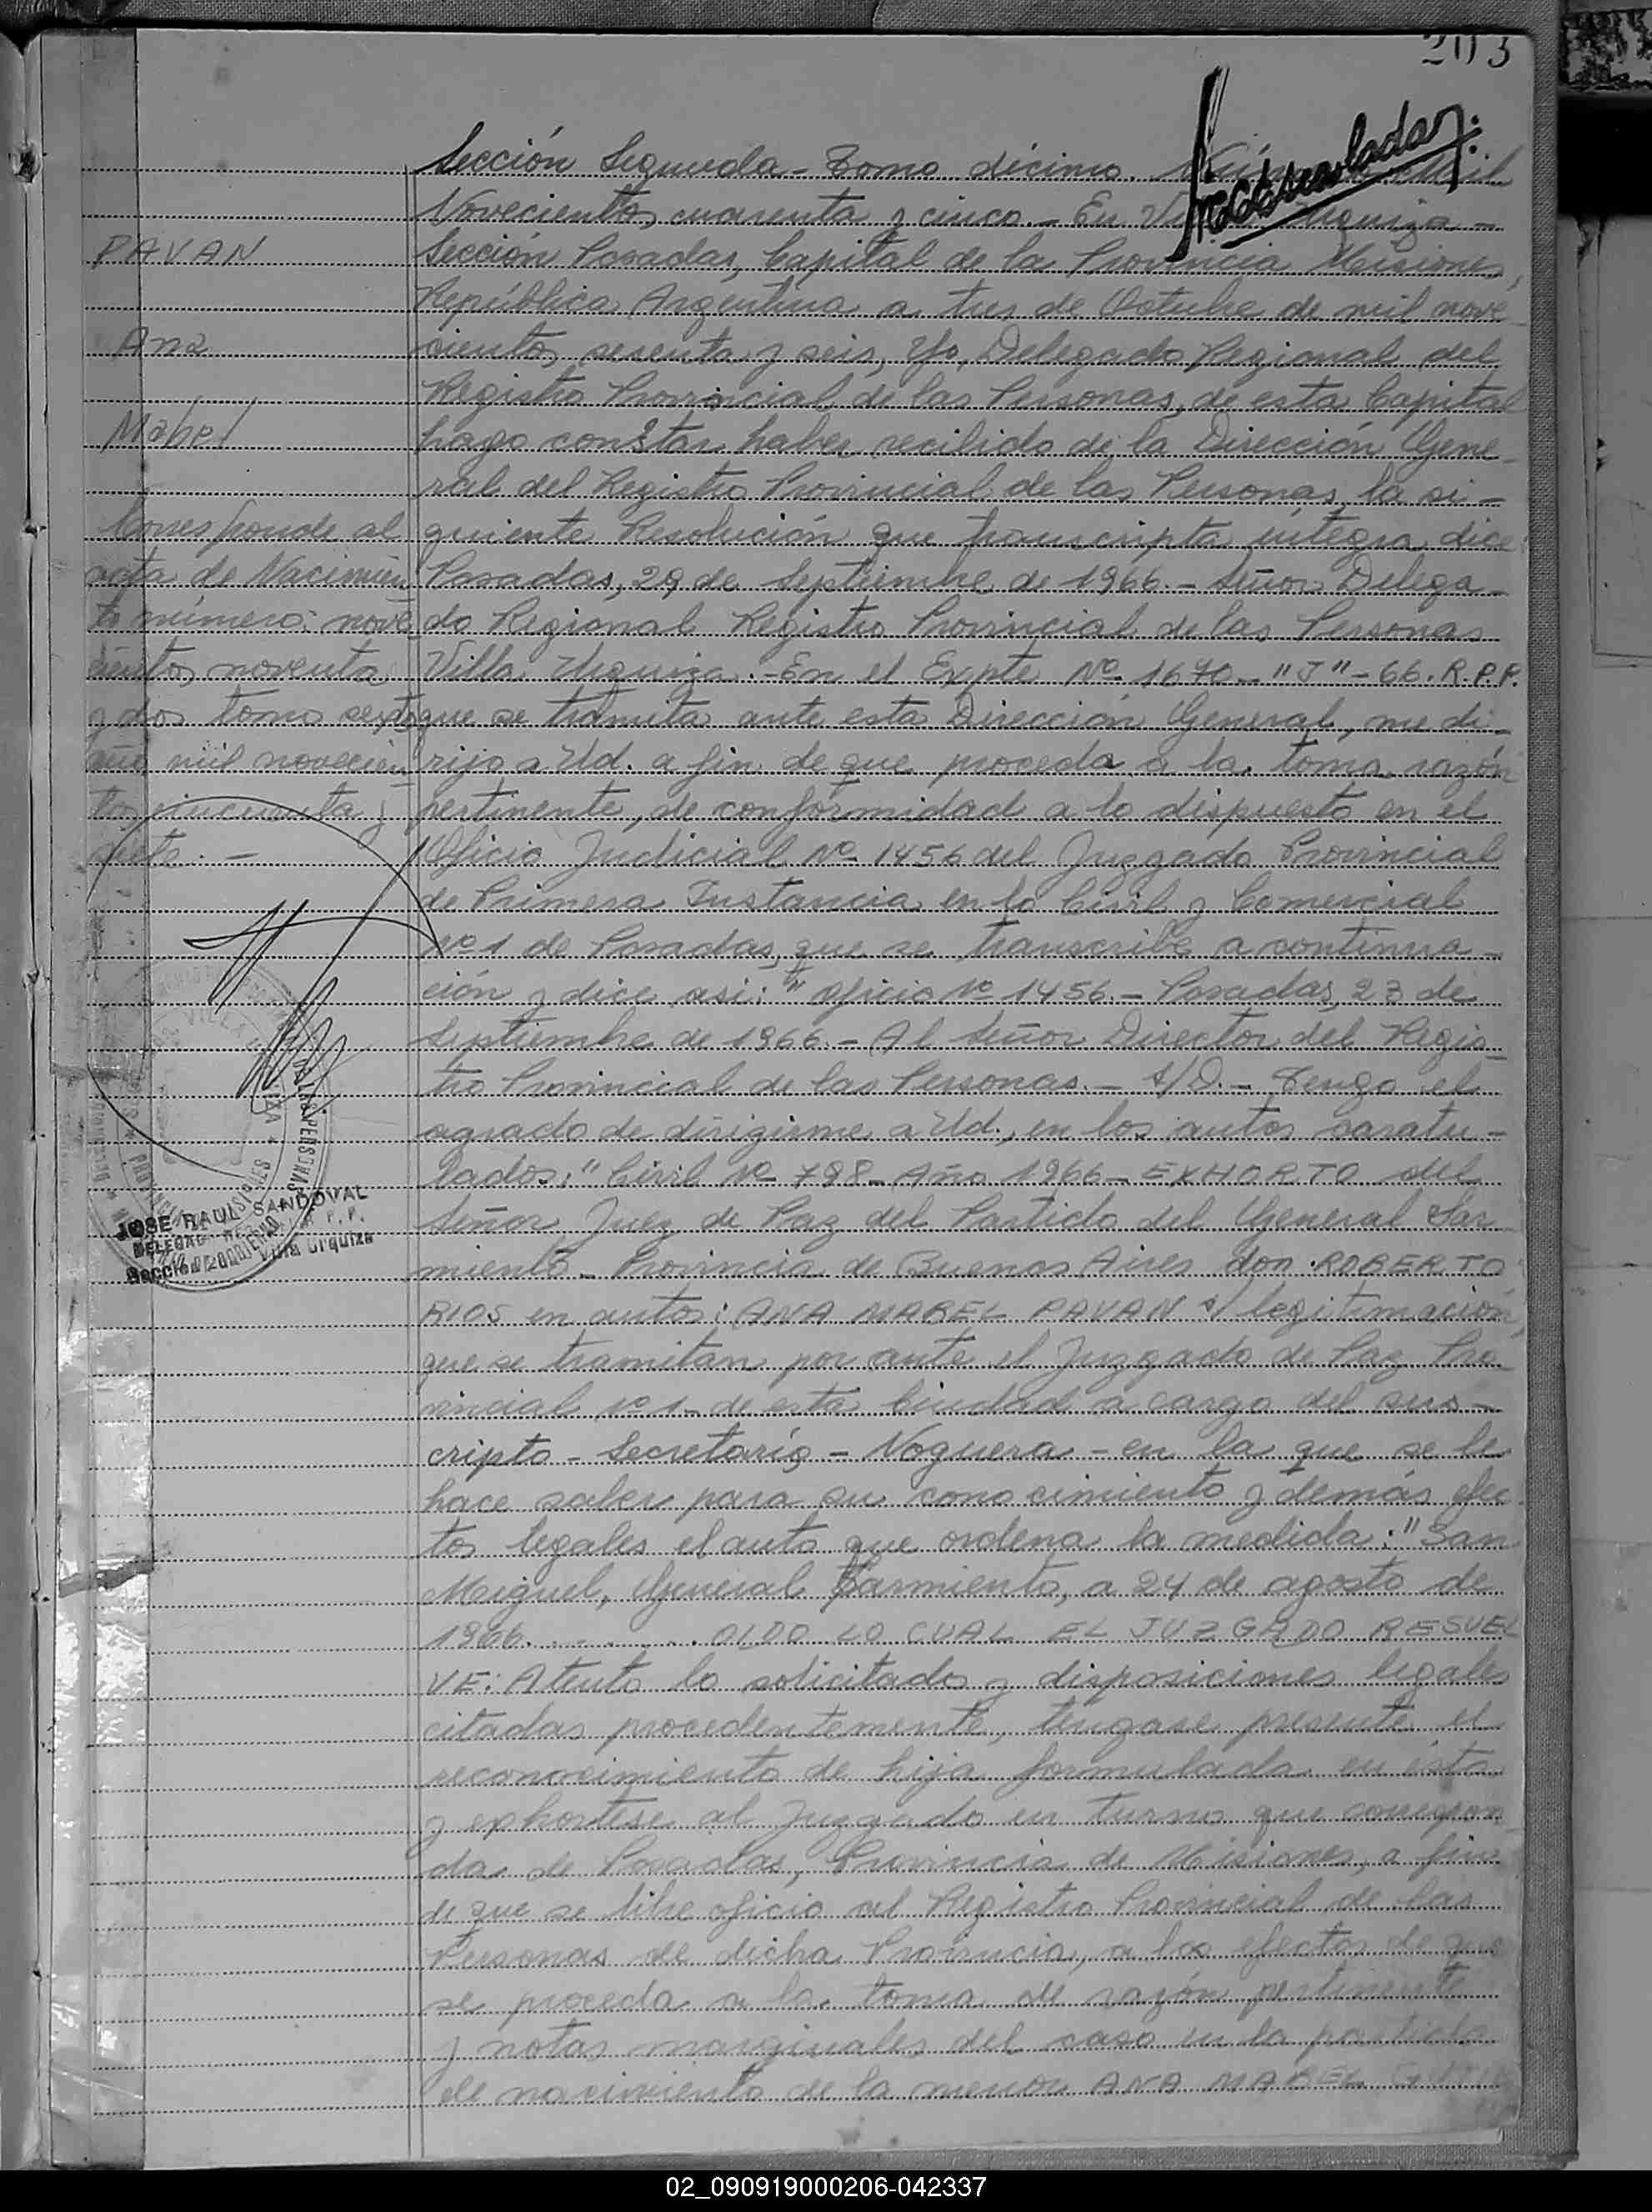 203
Sección Segunda - Tomo décimo. Mil
Novecientos cuarenta y cinco. - En Urquiza -
Sección Posadas, Capital de la Provincia Misiones,
República Argentina a tres de Octubre de mil nove-
cientos sesenta y seis, Yo, Delegado Regional del
Registro Provincial de las Personas, de esta Capital
hago constar haber recibido de la Dirección Gene-
ral del Registro Provincial de las Personas, la si-
guiente Resolución que transcripta íntegra, dice:
Posadas, 29 de Septiembre de 1966. - Señor Delega-
do Regional Registro Provincial de las Personas
Villa Urquiza. - En el Expte Nº 1670 - "J" - 66. R.P.P.
que se tramita ante esta Dirección General, me di-
rijo a Ud. a fin de que proceda a la toma razón
pertinente, de conformidad a lo dispuesto en el
Oficio Judicial Nº 1456 del Juzgado Provincial
de Primera Instancia en lo Civil y Comercial
Nº 1 de Posadas, que se transcribe a continua-
ción y dice asi: " Oficio Nº 1456. - Posadas, 23 de
Septiembre de 1966. - Al Señor Director del Regis-
tro Provincial de las Personas. - S/D. - Tengo el
agrado de dirigirme a Ud., en los autos caratu-
lados: "Civil Nº 798 - Año 1966 - EXHORTO del
Señor Juez de Paz del Partido del General Sar
miento - Provincia de Buenos Aires don ROBERTO
RIOS en autos: ANA MABEL PAVAN s/ legitimación,
que se tramitan por ante el Juzgado de Paz Pro-
vincial Nº 1 - de esta Ciudad a cargo del sus-
cripto - Secretaría - Noguera - en la que se le
hace saber para su conocimiento y demás efec
tos legales el auto que ordena la medida: "San
Miguel, General Sarmiento, a 24 de agosto de
1966. . . . . . . . OIDO LO CUAL EL JUZGADO RESUEL
VE: Atento lo solicitado y disposiciones legales
citadas procedentemente, tengase presente el
reconocimiento de hija formulada en ésta
y exhortese al Juzgado en turno que correspon-
da de Posadas, Provincia de Misiones, a fin
de que se libre oficio al Registro Provincial de las
Personas de dicha Provincia, a los efectos de que
se proceda a la toma de razón pertinente
y notas marginales del caso en la partida
de nacimiento de la menor ANA MABEL
PAVAN
Ana
Mabel
Corresponde al
acta de Nacimien
to número: nove
cientos noventa
y dos tomo sexto
año mil novecien
tos cincuenta y
siete. -
JOSE RAUL SANDOVAL
Villa Urquiza
02_090919000206-042337